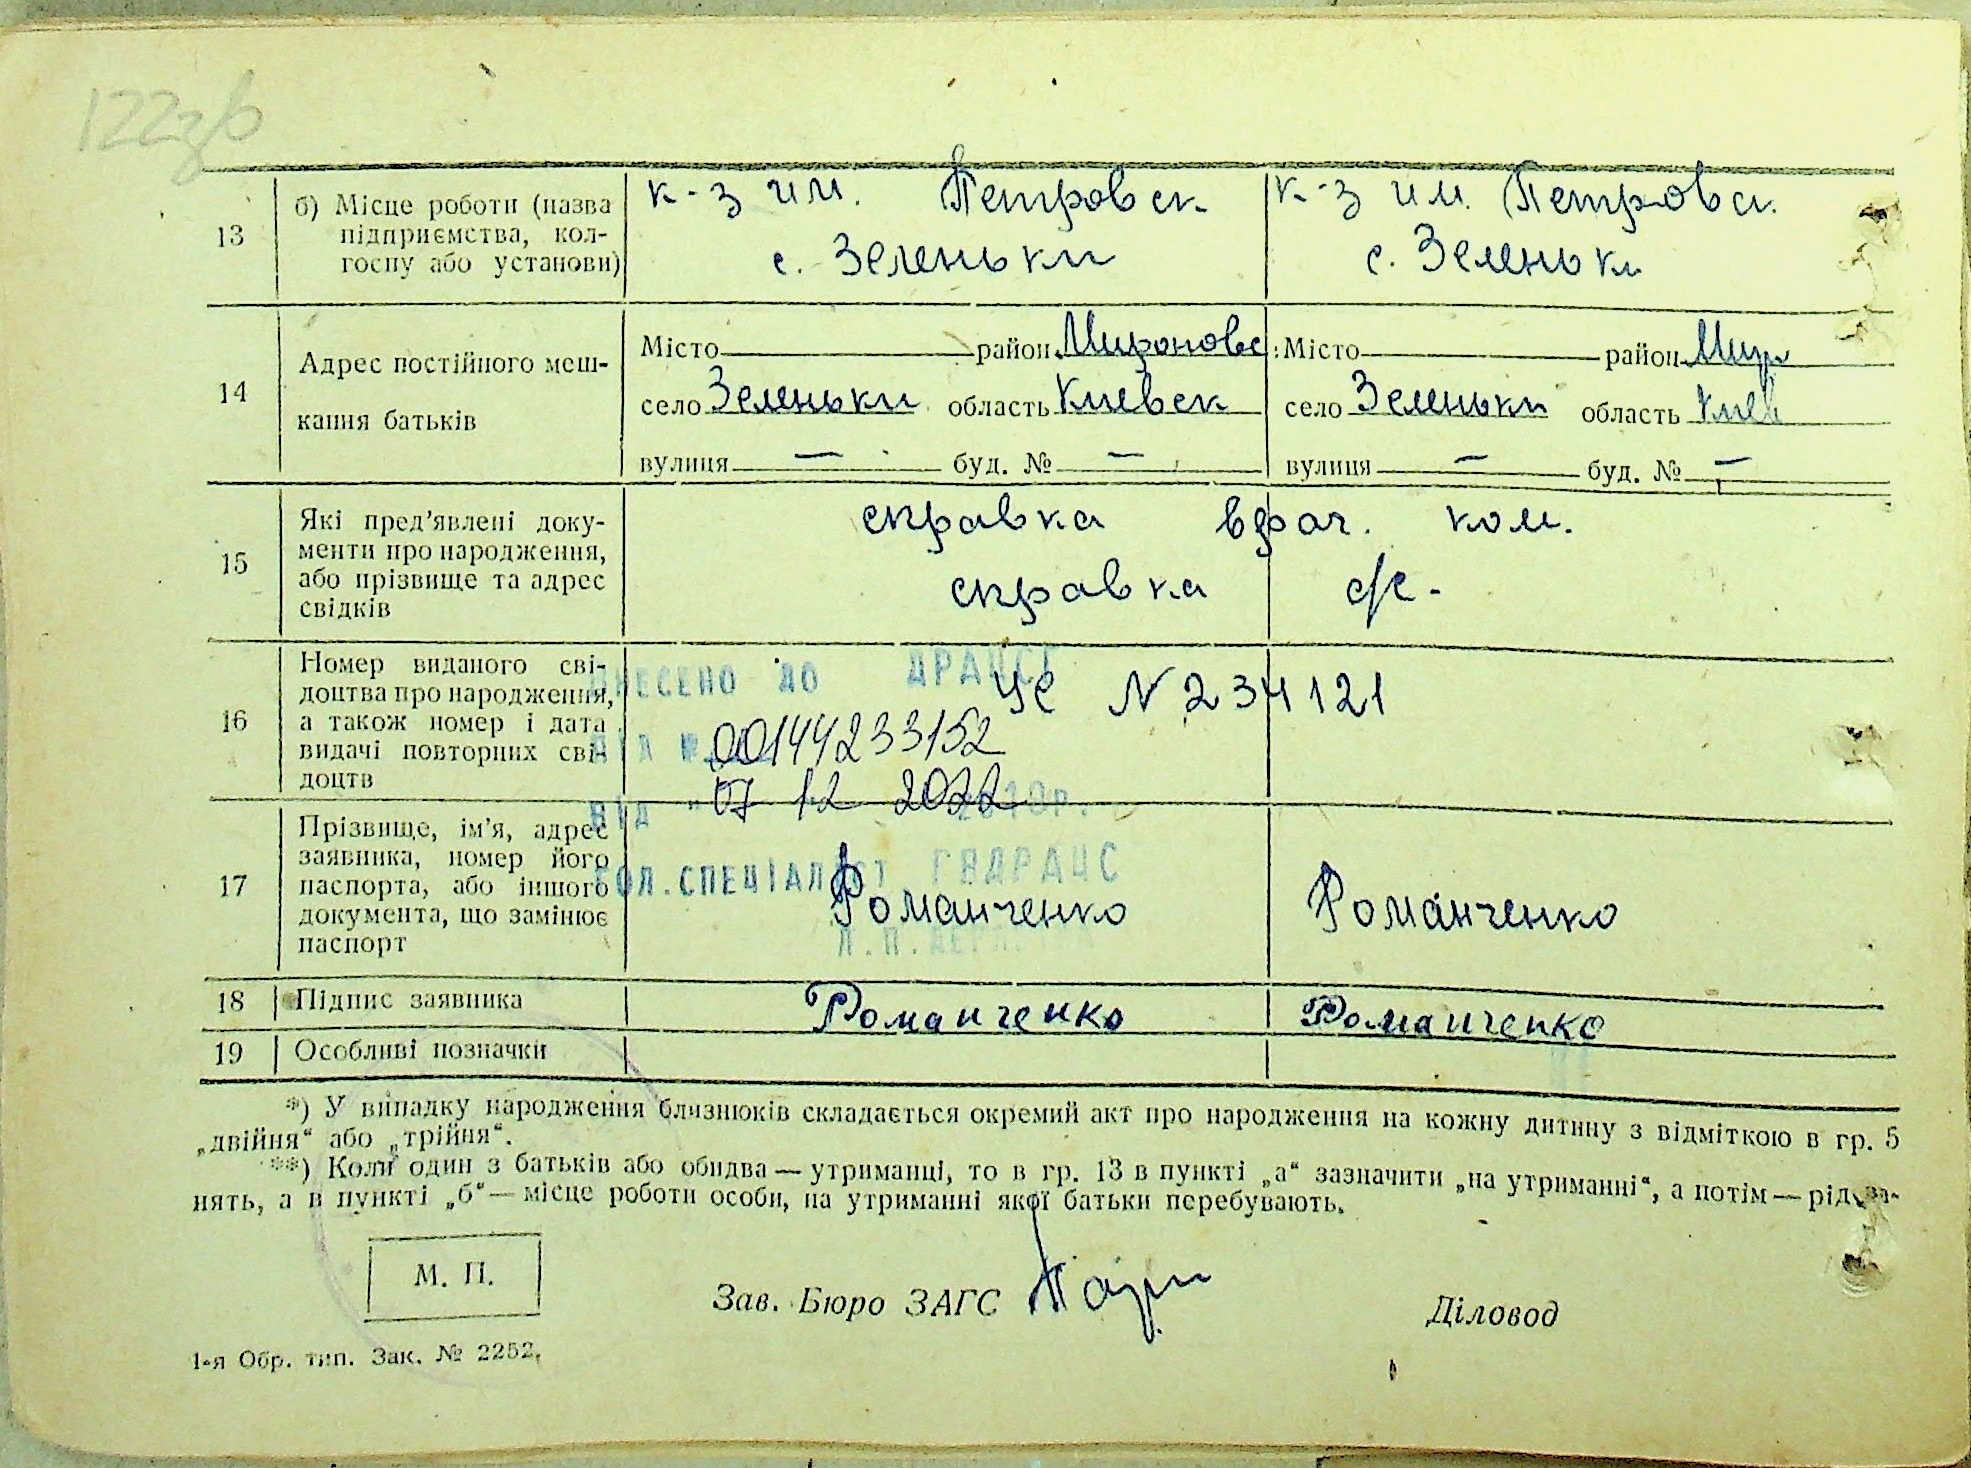 122зв
13 б) Місце роботи (назва підприємства, колгоспу або установи) к-з им. Петровск. к-з им. Петровск.
с. Зеленьки с. Зеленьки
14 Адрес постійного мешкання батьків
Місто район Мироновс. Місто район Мир
село Зеленьки область Киевск село Зеленьки область Киев
вулиця — буд. № — вулиця — буд. № —
15 Які пред'явлені документи про народження, або прізвище та адрес свідків
справка врач. ком.
справка с/с.
16 Номер виданого свідоцтва про народження, а також номер і дата видачі повторних свідоцтв
ВНЕСЕНО ДО ДРАЦСГ
N 234121
00144233152
ВІД 07 12 2022
17 Прізвище, ім'я, адрес заявника, номер його паспорта, або іншого документа, що замінює паспорт
ГОЛ.СПЕЦІАЛІСТ ГВДРАЦС
Романченко Романченко
18 Підпис заявника Романченко Романченко
19 Особливі позначки
*) У випадку народження близнюків складається окремий акт про народження на кожну дитину з відміткою в гр. 5
„двійня“ або „трійня“.
**) Коли один з батьків або обидва — утриманці, то в гр. 13 в пункті „а“ зазначити „на утриманні“, а потім — рід за-
нять, а в пункті „б“ — місце роботи особи, на утриманні якої батьки перебувають.
М. П.
Зав. Бюро ЗАГС
Діловод
1-я Обр. тип. Зак. № 2252.